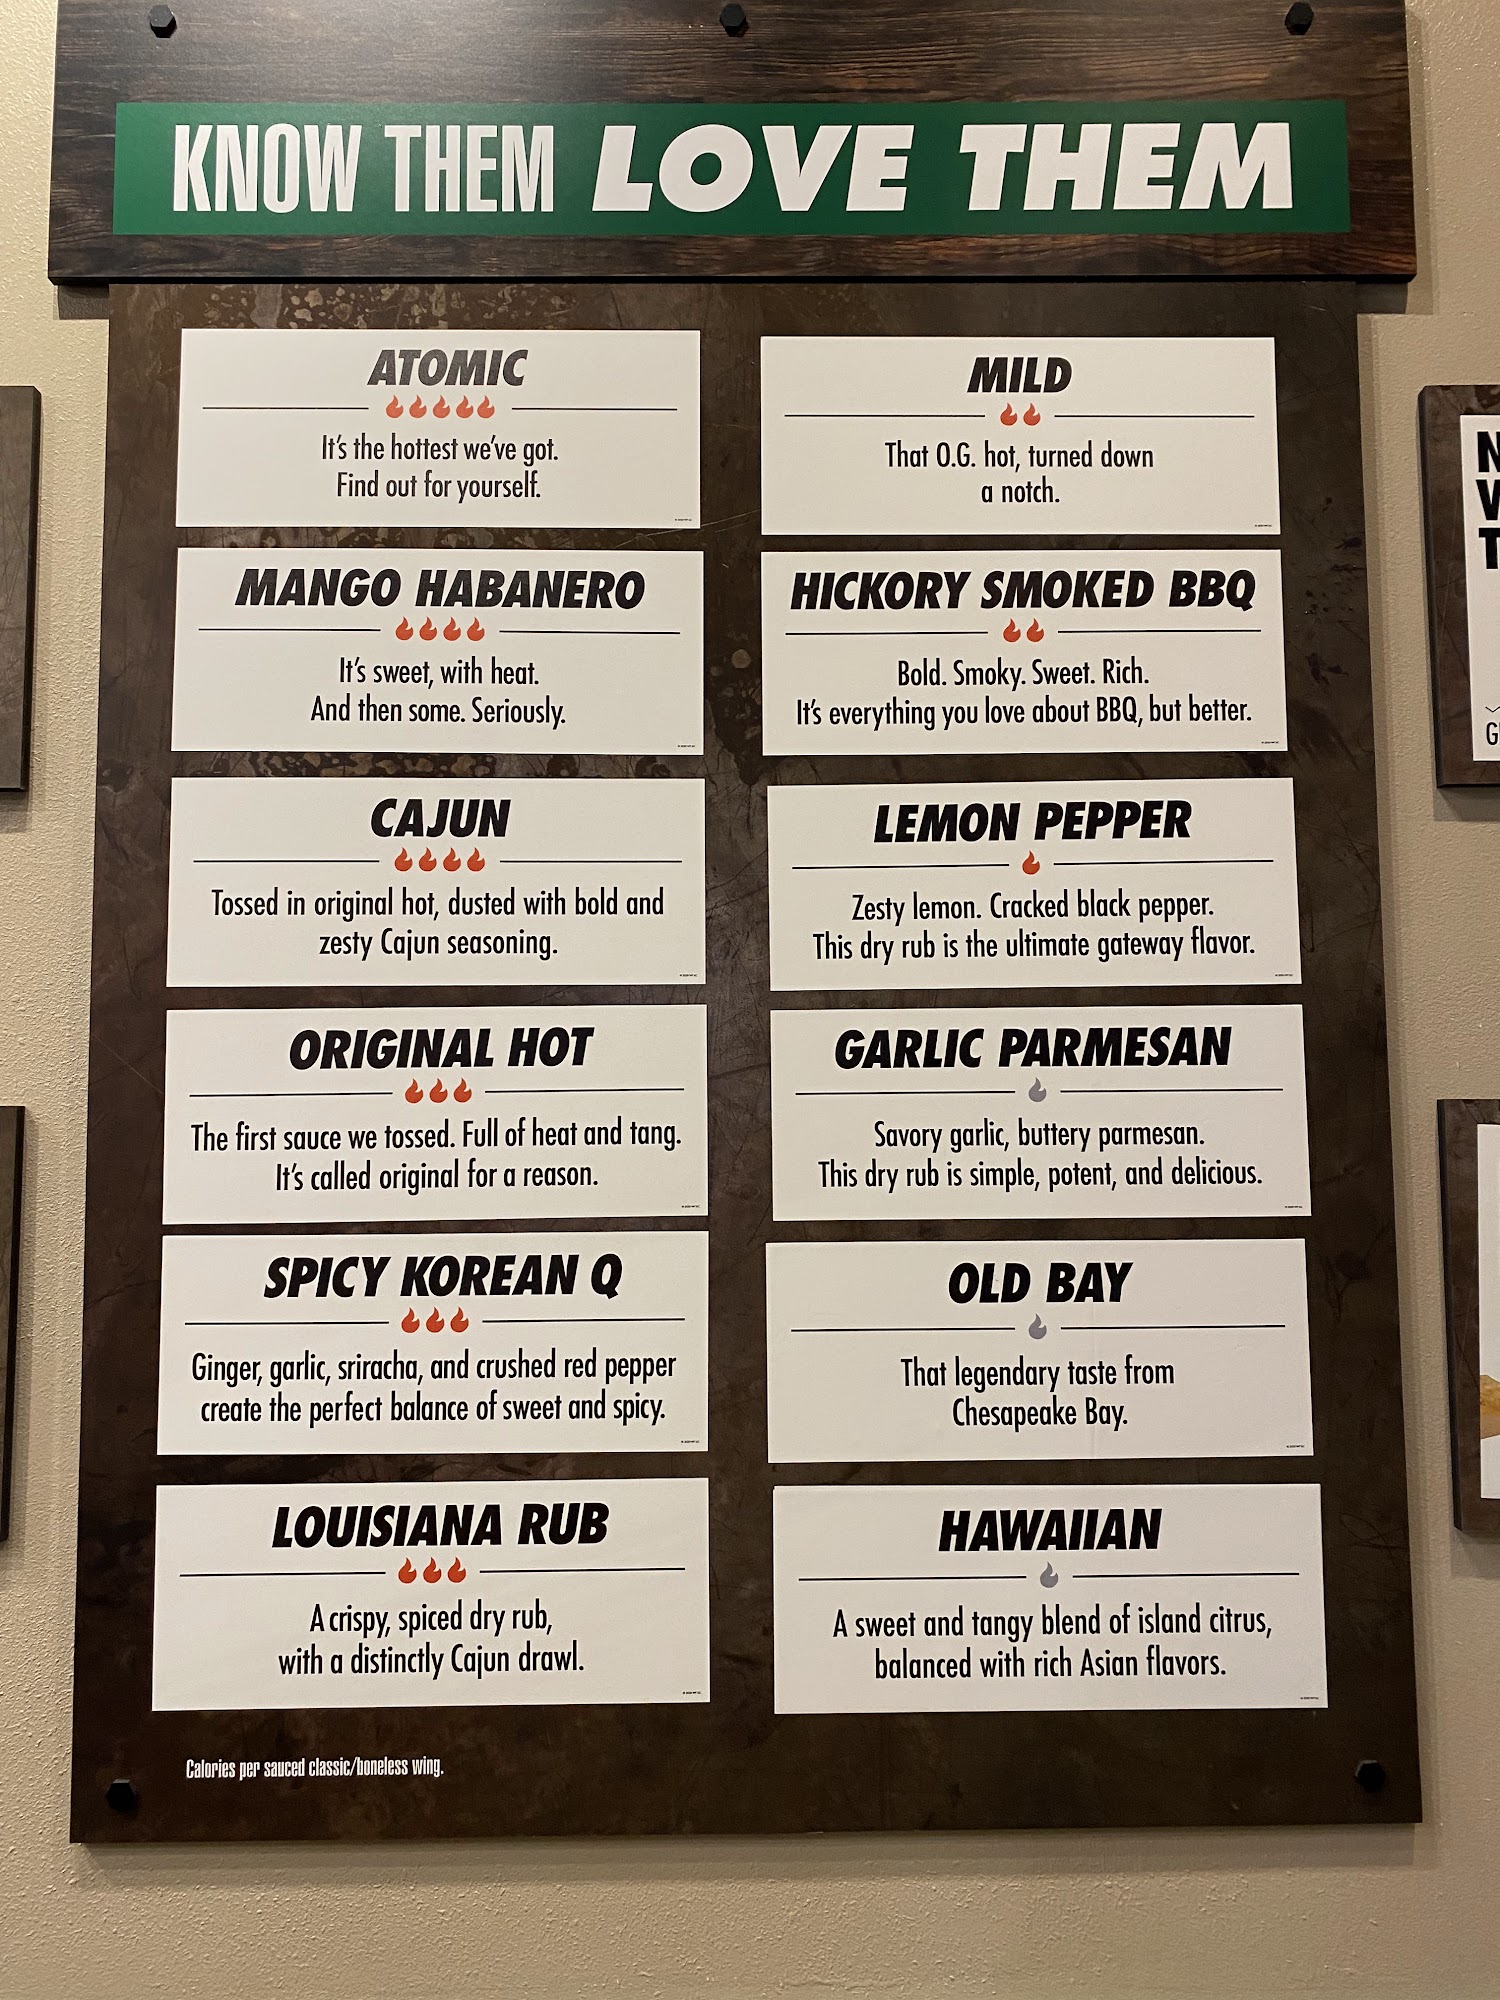 KNOW THEM LOVE THEM
ATOMIC
It's the hottest we've got.
Find out for yourself.
MANGO HABANERO
It's sweet, with heat.
And then some. Seriously.
CAJUN
Tossed in original hot, dusted with bold and
zesty Cajun seasoning.
ORIGINAL HOT
The first sauce we tossed. Full of heat and tang.
It's called original for a reason.
SPICY KOREAN Q
Ginger, garlic, sriracha, and crushed red pepper
create the perfect balance of sweet and spicy.
LOUISIANA RUB
A crispy, spiced dry rub,
with a distinctly Cajun drawl.
MILD
That O.G. hot, turned down
a notch.
HICKORY SMOKED BBQ
Bold. Smoky. Sweet. Rich.
It's everything you love about BBQ, but better.
LEMON PEPPER
Zesty lemon. Cracked black pepper.
This dry rub is the ultimate gateway flavor.
GARLIC PARMESAN
Savory garlic, buttery parmesan.
This dry rub is simple, potent, and delicious.
OLD BAY
That legendary taste from
Chesapeake Bay.
HAWAIIAN
A sweet and tangy blend of island citrus,
balanced with rich Asian flavors.
Calories per sauced classic/boneless wing.